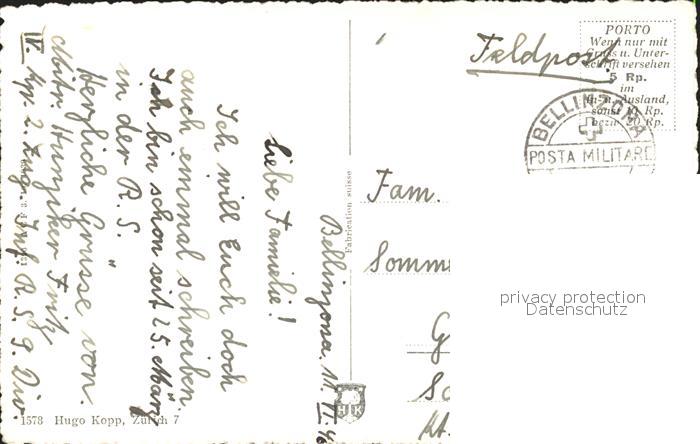 Bellinzona, 11.
Liebe Familie!
Ich will Euch doch
auch einmal schreiben.
Ich bin schon seit 25. März
in der R.S.
Herzliche Grüsse von
Mitr. Hunziker Fritz
IV. Kp. 2. Zug. Inf. R.S. 9. Div.
1578 Hugo Kopp, Zürich 7
Fabrication suisse
HK
Feldpost
PORTO
Wenn nur mit
Gruss u. Unter-
schrift versehen
5 Rp.
im
In- u. Ausland,
sonst 10 Rp.
bezw. 20 Rp.
BELLINZONA
POSTA MILITARE
Fam.
Somm
G
Kt.
privacy protection
Datenschutz